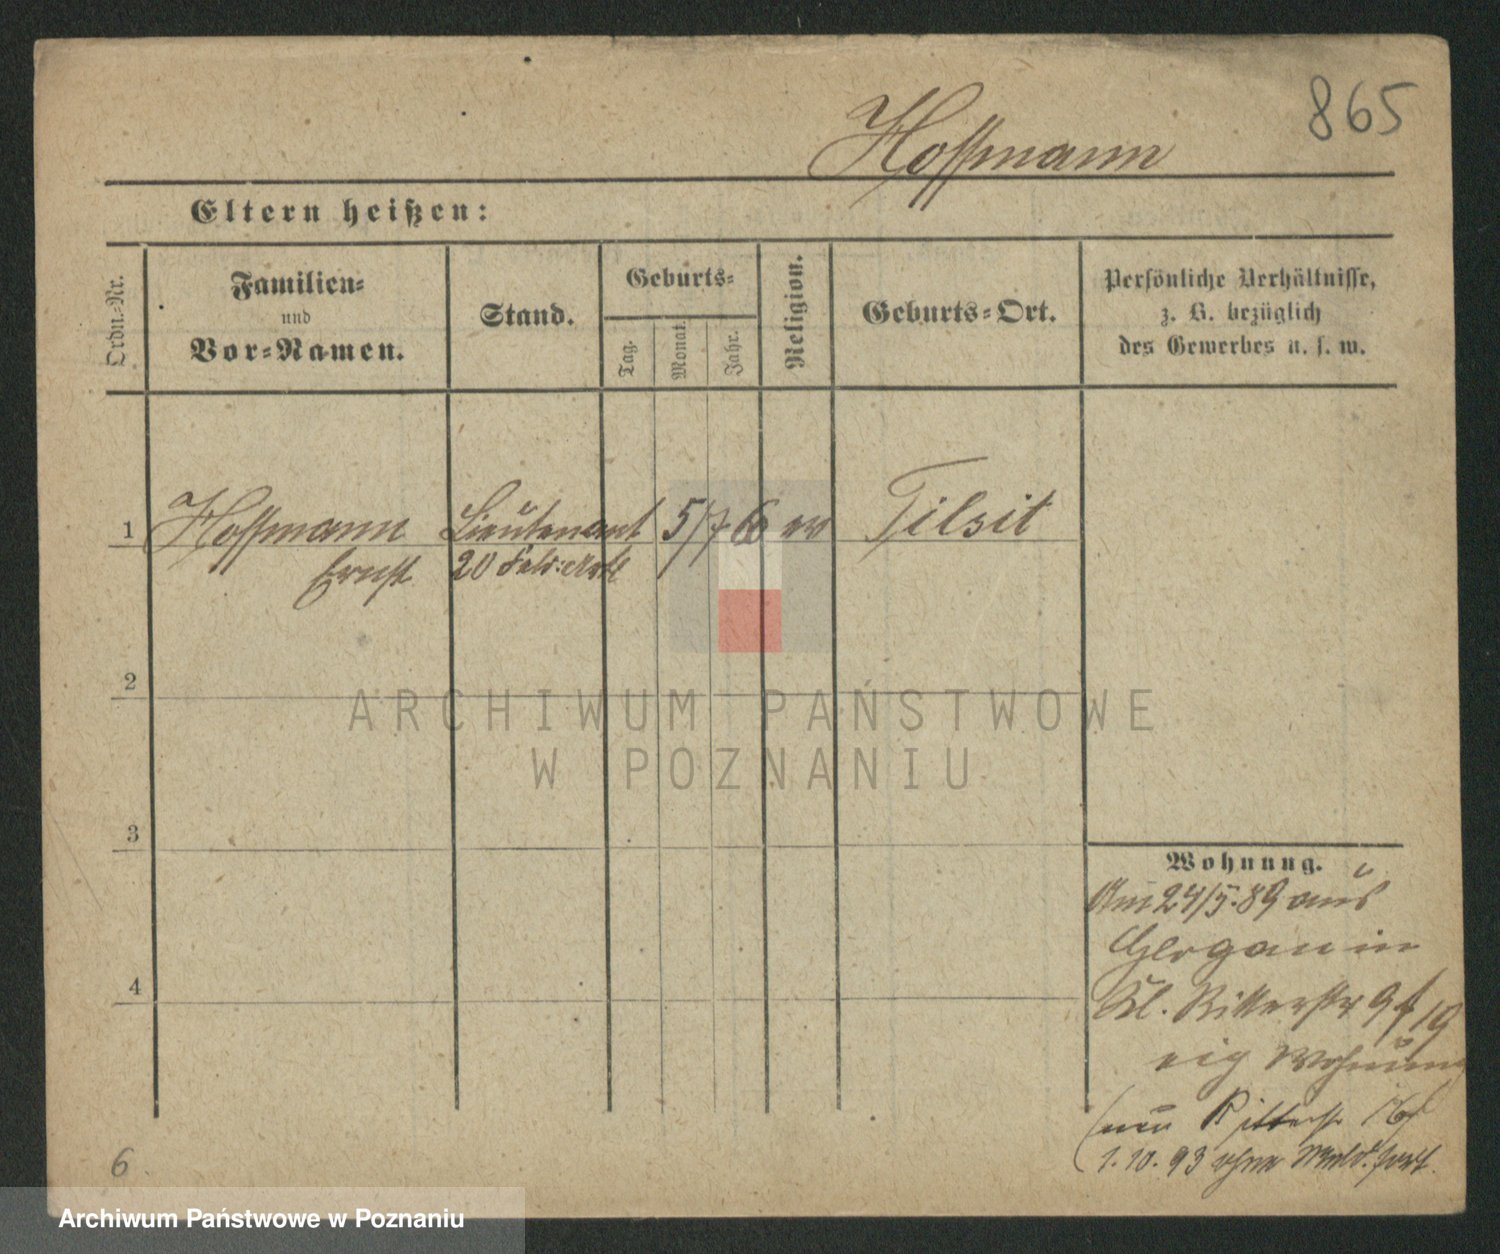 865
Hoffmann
Eltern heißen:
Ordn.-Nr.
Familien-
und
Vor-Namen.
Stand.
Geburts-
Tag.
Monat.
Jahr.
Religion.
Geburts-Ort.
Persönliche Verhältnisse,
z. B. bezüglich
des Gewerbes u. s. w.
1 Hoffmann Lieutenant 5/7 66 ev Tilsit
Ernst 20 Feld: Art
2
3
4
Wohnung.
Am 24/5.89 aus
Glogau in
Kl. Ritterstr 9
eig Wohnung
neu Ritterstr
1.10.93 ohne Meld. fort.
6
ARCHIWUM PAŃSTWOWE
W POZNANIU
Archiwum Państwowe w Poznaniu